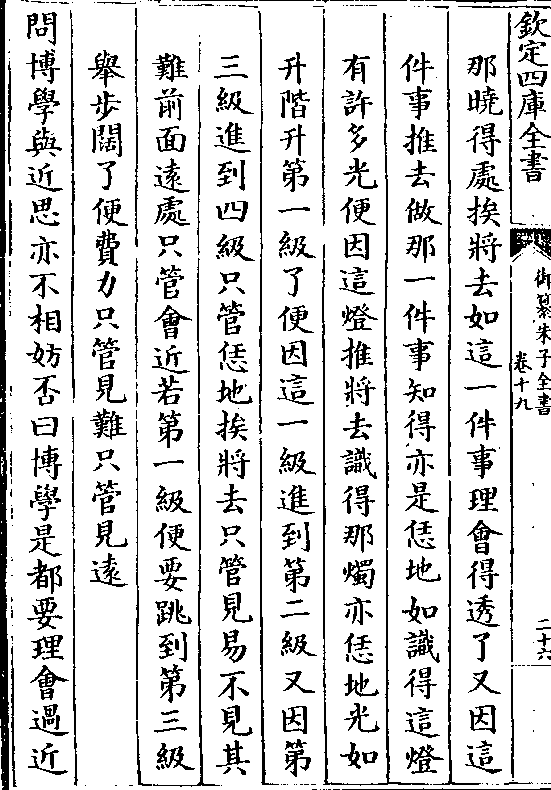 欽定四庫全書
御纂朱子全書
卷十九
二十六
那曉得處挨將去如這一件事理會得透了又因這
件事推去做那一件事知得亦是恁地如識得這燈
有許多光便因這燈推將去識得那燭亦恁地光如
升階升第一級了便因這一級進到第二級又因第
三級進到四級只管恁地挨將去只管見易不見其
難前面遠處只管會近若第一級便要跳到第三級
舉步闊了便費力只管見難只管見遠
問博學與近思亦不相妨否曰博學是都要理會過近